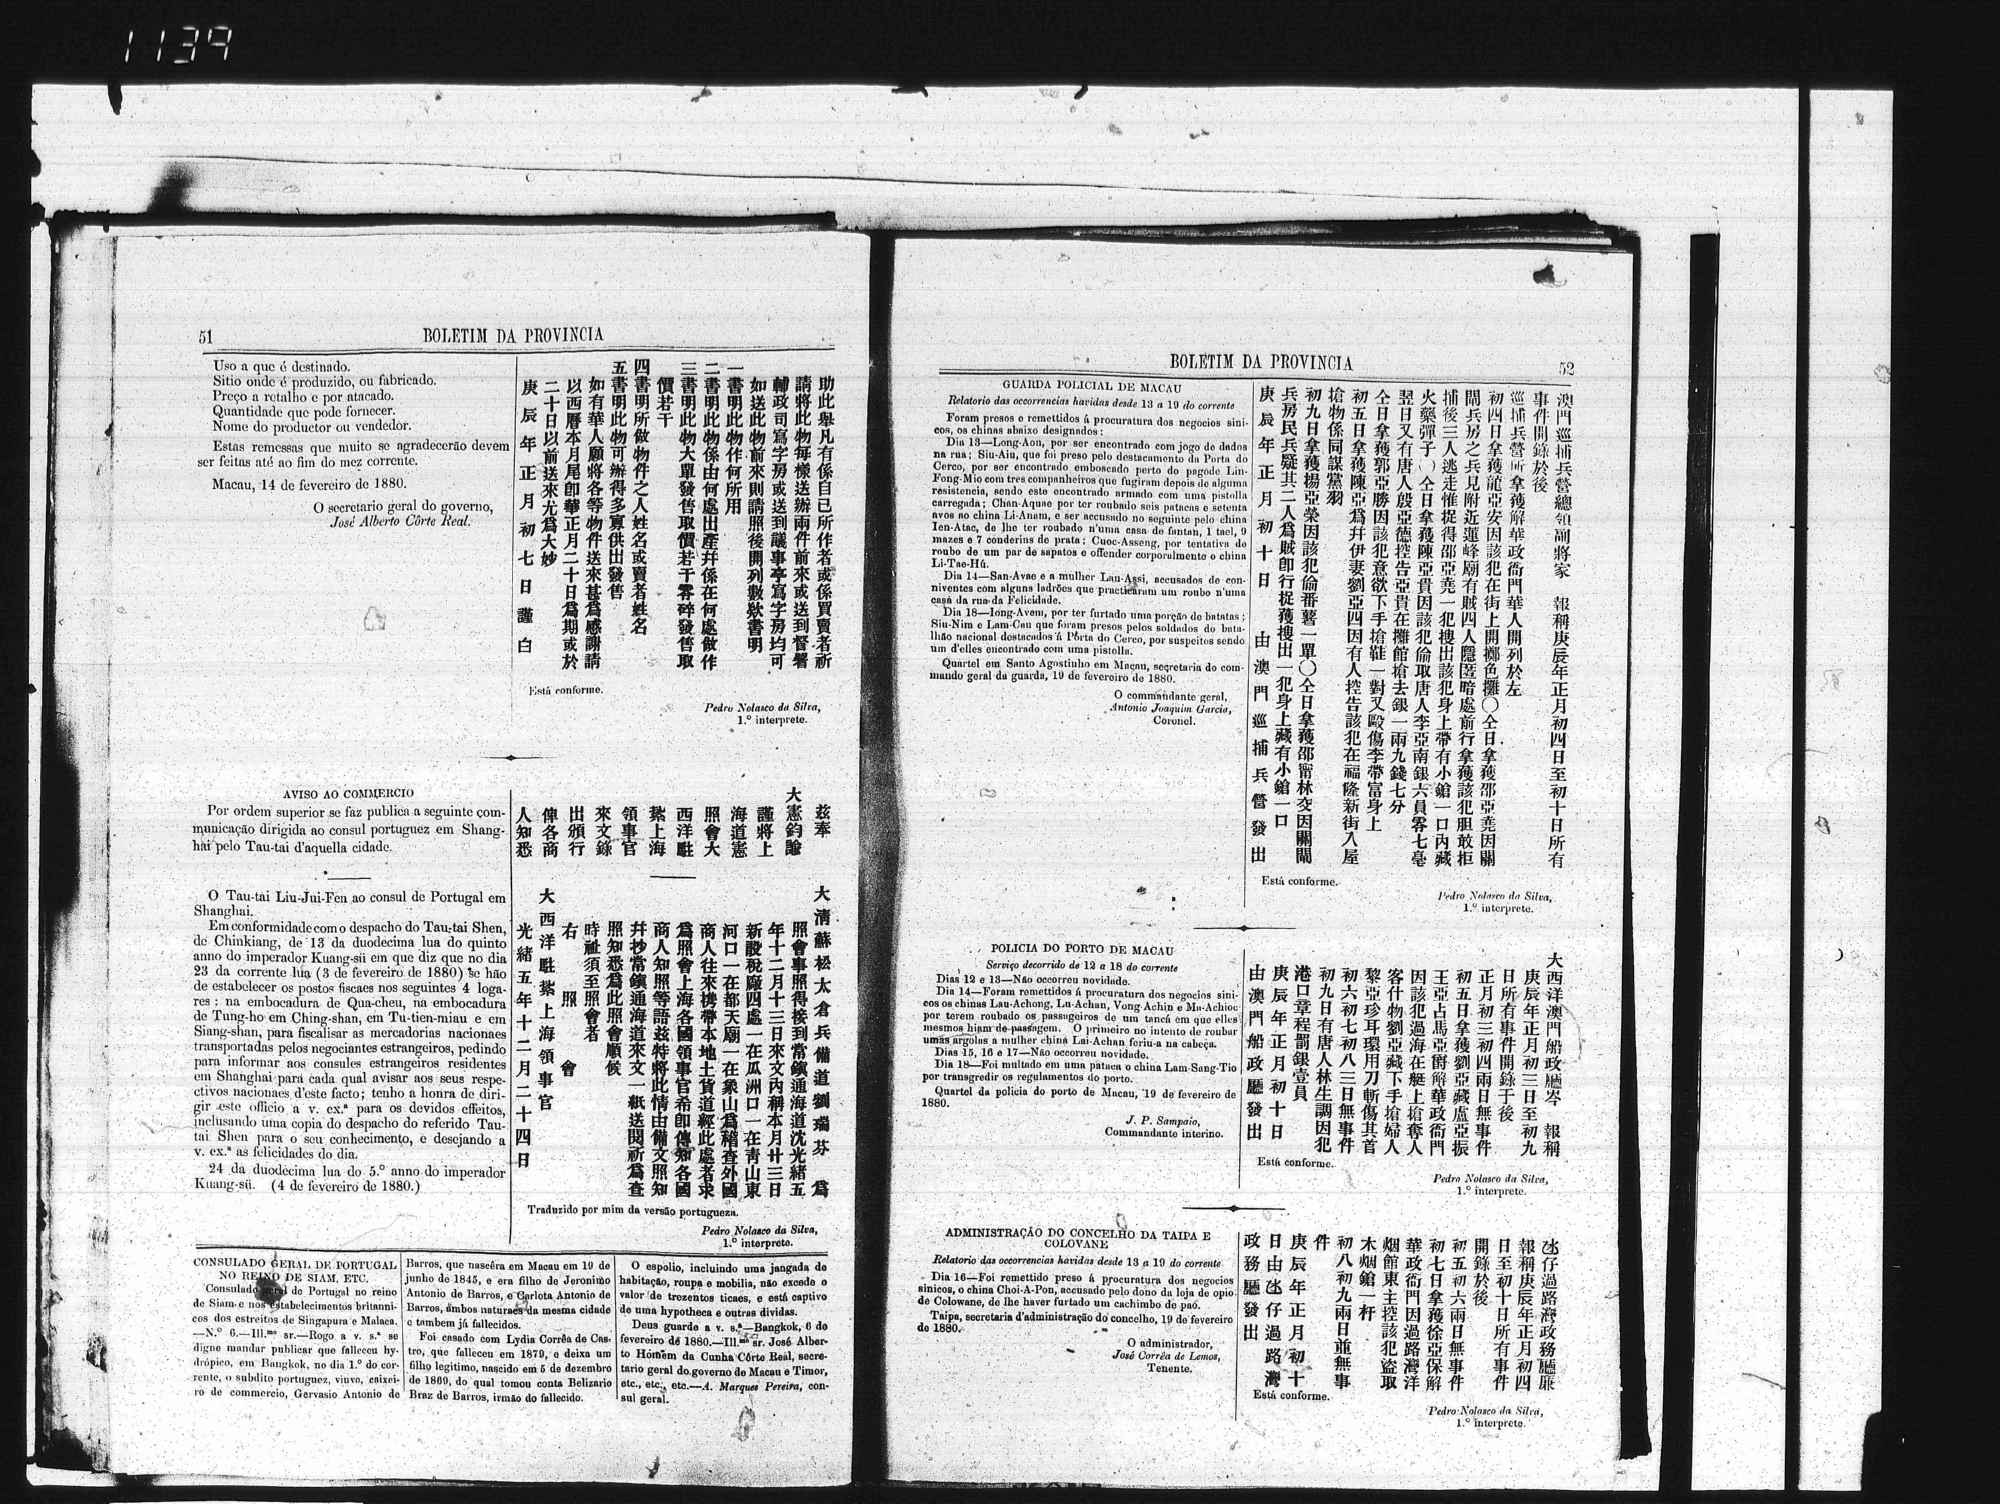 1139
51
BOLETIM DA PROVINCIA
Uso a que é destinado.
Sitio onde é produzido, ou fabricado.
Preço a retalho e por atacado.
Quantidade que pode fornecer.
Nome do productor ou vendedor.
Estas remessas que muito se agradecerão devem
ser feitas até ao fim do mez corrente.
Macau, 14 de fevereiro de 1880.
O secretario geral do governo,
José Alberto Côrte Real.
助此舉凡有係自已所作者或係買賣者祈
請將此物每樣送辦兩件前來或送到督署
輔政司寫字房或送到議事亭寫字房均可
如送此物前來則請照後開列數欵書明
一書明此物作何所用
二書明此物係由何處出產幷係在何處做作
三書明此物大單發售取價若干零碎發售取
價若干
四書明所做物件之人姓名或賣者姓名
五書明此物可辦得多寡供出發售
如有華人願將各等物件送來甚爲感謝請
以西曆本月尾卽華正月二十日爲期或於
二十日以前送來尤爲大妙
庚辰年正月初七日謹白
Está conforme.
Pedro Nolasco da Silva,
1.º interprete.
AVISO AO COMMERCIO
Por ordem superior se faz publica a seguinte com-
municação dirigida ao consul portuguez em Shang-
hai pelo Tau-tai d'aquella cidade.
O Tau-tai Liu-Jui-Fen ao consul de Portugal em
Shanghai.
Em conformidade com o despacho do Tau-tai Shen,
de Chinkiang, de 13 da duodecima lua do quinto
anno do imperador Kuang-sü em que diz que no dia
23 da corrente lua (3 de fevereiro de 1880) se hão
de estabelecer os postos fiscaes nos seguintes 4 loga-
res: na embocadura de Qua-cheu, na embocadura
de Tung-ho em Ching-shan, em Tu-tien-miau e em
Siang-shan, para fiscalisar as mercadorias nacionaes
transportadas pelos negociantes estrangeiros, pedindo
para informar aos consules estrangeiros residentes
em Shanghai para cada qual avisar aos seus respe-
ctivos nacionaes d'este facto; tenho a honra de diri-
gir este officio a v. ex.ª para os devidos effeitos,
inclusando uma copia do despacho do referido Tau-
tai Shen para o seu conhecimento, e desejando a
v. ex.ª as felicidades do dia.
24 da duodecima lua do 5.º anno do imperador
Kuang-sü. (4 de fevereiro de 1880.)
茲奉
大憲鈞諭
謹將上
海道憲
照會大
西洋駐
紮上海
領事官
來文錄
出頒行
俾各商
人知悉
大清蘇松太倉兵備道劉瑞芬 爲
照會事照得接到常鎮通海道沈光緒五
年十二月十三日來文內稱本月廿三日
新設稅廠四處一在瓜洲口一在靑山東
河口一在都天廟一在象山爲稽查外國
商人往來携帶本地土貨道經此處者求
爲照會上海各國領事官希卽傳知各國
商人知照等語茲特將此情由備文照知
幷抄當鎮通海道來文一紙送閱祈爲查
照知悉爲此照會順候
時祉須至照會者
右 照 會
大西洋駐紮上海領事官
光緒五年十二月二十四日
Traduzido por mim da versão portugueza.
Pedro Nolasco da Silva,
1.º interprete.
CONSULADO GERAL DE PORTUGAL
NO REINO DE SIAM, ETC.
Consulado geral de Portugal no reino
de Siam e nos estabelecimentos britanni-
cos dos estreitos de Singapura e Malaca.
—N.º 6.—Ill.mo sr.—Rogo a v. s.ª se
digne mandar publicar que falleceu hy-
drópico, em Bangkok, no dia 1.º do cor-
rente, o subdito portuguez, viuvo, caixei-
ro de commercio, Gervasio Antonio de
Barros, que nascêra em Macau em 19 de
junho de 1845, e era filho de Jeronimo
Antonio de Barros, e Carlota Antonio de
Barros, ambos naturaes da mesma cidade
e tambem já fallecidos.
Foi casado com Lydia Corrêa de Cas-
tro, que falleceu em 1879, e deixa um
filho legitimo, nascido em 5 de dezembro
de 1869, do qual tomou conta Belizario
Braz de Barros, irmão do fallecido.
O espolio, incluindo uma jangada de
habitação, roupa e mobilia, não excede o
valor de trezentos ticaes, e está captivo
de uma hypotheca e outras dividas.
Deus guarde a v. s.ª—Bangkok, 6 de
fevereiro de 1880.—Ill.mo sr. José Alber-
to Homem da Cunha Côrte Real, secre-
tario geral do governo de Macau e Timor,
etc., etc., etc.—A. Marques Pereira, con-
sul geral.
BOLETIM DA PROVINCIA
52
GUARDA POLICIAL DE MACAU
Relatorio das occorrencias havidas desde 13 a 19 do corrente
Foram presos e remettidos á procuratura dos negocios sini-
cos, os chinas abaixo designados:
Dia 13—Long-Aon, por ser encontrado com jogo de dados
na rua; Siu-Aiu, que foi preso pelo destacamento da Porta do
Cerco, por ser encontrado emboscado perto do pagode Lin-
Fong-Mio com tres companheiros que fugiram depois de alguma
resistencia, sendo este encontrado armado com uma pistolla
carregada; Chan-Aquae por ter roubado seis patacas e setenta
avos ao china Li-Anam, e ser accusado no seguinte pelo china
Ien-Atac, de lhe ter roubado n'uma casa de fantan, 1 tael, 9
mazes e 7 conderins de prata; Cuoc-Asseng, por tentativa de
roubo de um par de sapatos e offender corporalmente o china
Li-Tae-Hú.
Dia 14—San-Avae e a mulher Lau-Assi, accusados de con-
niventes com alguns ladrões que practicaram um roubo n'uma
casa da rua da Felicidade.
Dia 18—Iong-Avem, por ter furtado uma porção de batatas;
Siu-Nim e Lam-Cau que foram presos pelos soldados do bata-
lhão nacional destacados á Porta do Cerco, por suspeitos sendo
um d'elles encontrado com uma pistolla.
Quartel em Santo Agostinho em Macau, secretaria do com-
mando geral da guarda, 19 de fevereiro de 1880.
O commandante geral,
Antonio Joaquim Garcia,
Coronel.
澳門巡捕兵營總領副將家 報稱庚辰年正月初四日至初十日所有
事件開錄於後
巡捕兵營所拿獲解華政衙門華人開列於左
初四日拿獲龍亞安因該犯在街上開擲色攤○仝日拿獲邵亞堯因關
閘兵房之兵見附近蓮峰廟有賊四人隱匿暗處前行拿獲該犯胆敢拒
捕後三人逃走惟捉得邵亞堯一犯搜出該犯身上帶有小鎗一口內藏
火藥彈子○仝日拿獲陳亞貴因該犯偷取唐人李亞南銀六員零七毫
翌日又有唐人殷亞德控告亞貴在攤館搶去銀一兩九錢七分
仝日拿獲郭亞勝因該犯意欲下手搶鞋一對又毆傷李帶富身上
初五日拿獲陳亞爲幷伊妻劉亞四因有人控告該犯在福隆新街入屋
搶物係同謀黨羽
初九日拿獲楊亞榮因該犯偷番薯一單○仝日拿獲邵甯林交因關閘
兵房民兵疑其二人爲賊卽行捉獲搜出一犯身上藏有小鎗一口
庚辰年正月初十日 由澳門巡捕兵營發出
Está conforme.
Pedro Nolasco da Silva,
1.º interprete.
POLICIA DO PORTO DE MACAU
Serviço decorrido de 12 a 18 do corrente
Dias 12 e 13—Não occorreu novidade.
Dia 14—Foram remettidos á procuratura dos negocios sini-
cos os chinas Lau-Achong, Lu-Achan, Vong-Achin e Ma-Achioc
por terem roubado os passageiros de um tancá em que elles
mesmos hiam de passagem. O primeiro no intento de roubar
umas argolas a mulher chiná Lai-Achan feriu-a na cabeça.
Dias 15, 16 e 17—Não occorreu novidade.
Dia 18—Foi multado em uma pataca o china Lam-Sang-Tio
por transgredir os regulamentos do porto.
Quartel da policia do porto de Macau, 19 de fevereiro de
1880.
J. P. Sampaio,
Commandante interino.
大西洋澳門船政廳岑 報稱
庚辰年正月初三日至初九
日所有事件開錄于後
正月初三初四兩日無事件
初五日拿獲劉亞藏盧亞振
王亞占馬亞爵解華政衙門
因該犯過海在艇上搶奪人
客什物劉亞藏下手搶婦人
黎亞珍耳環用刀斬傷其首
初六初七初八三日無事件
初九日有唐人林生調因犯
港口章程罰銀壹員
庚辰年正月初十日
由澳門船政廳發出
Está conforme.
Pedro Nolasco da Silva,
1.º interprete.
ADMINISTRAÇÃO DO CONCELHO DA TAIPA E
COLOVANE
Relatorio das occorrencias havidas desde 13 a 19 do corrente
Dia 16—Foi remettido preso á procuratura dos negocios
sinicos, o china Choi-A-Pon, accusado pelo dono da loja de opio
de Colowane, de lhe haver furtado um cachimbo de paó.
Taipa, secretaria d'administração do concelho, 19 de fevereiro
de 1880.
O administrador,
José Corrêa de Lemos,
Tenente.
氹仔過路灣政務廳廉
報稱庚辰年正月初四
日至初十日所有事件
開錄於後
初五初六兩日無事件
初七日拿獲徐亞保解
華政衙門因過路灣洋
烟館東主控該犯盜取
木烟鎗一杆
初八初九兩日並無事
件
庚辰年正月初十
日由氹仔過路灣
政務廳發出
Está conforme.
Pedro Nolasco da Silva,
1.º interprete.